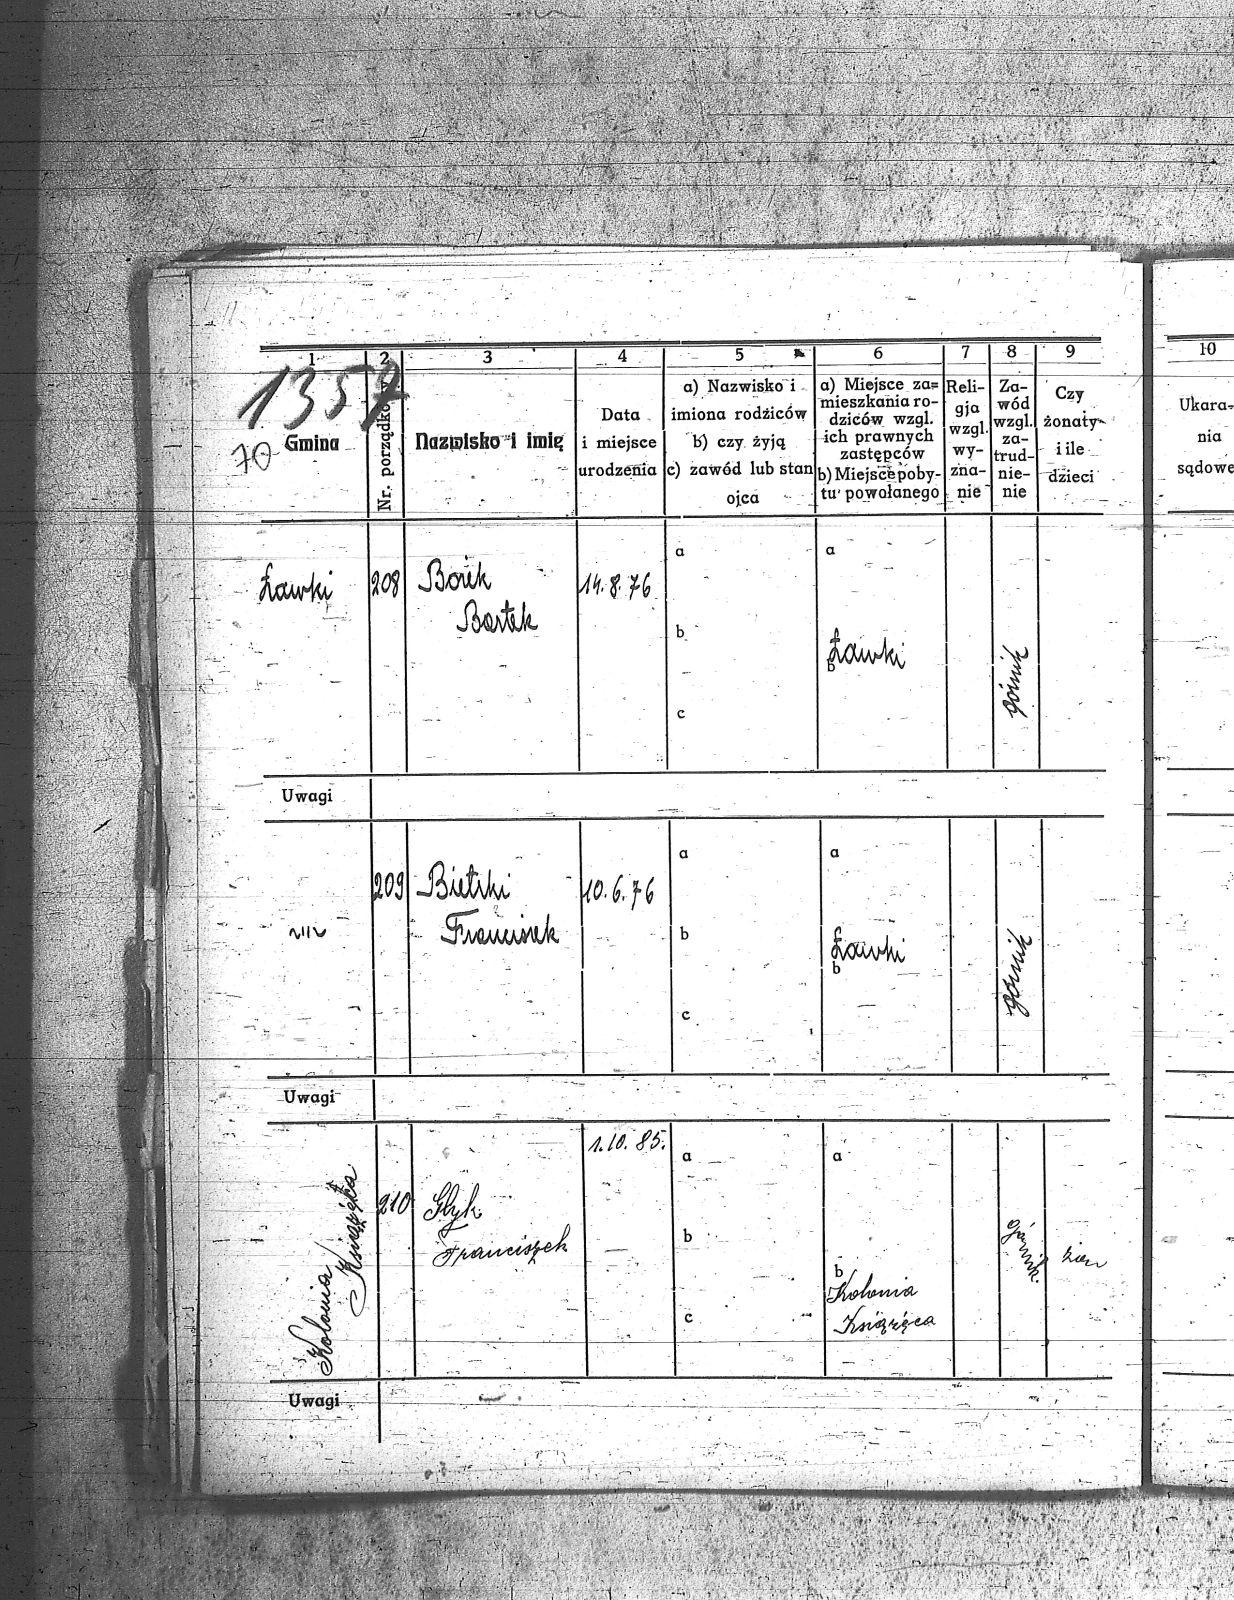 1 2 3 4 5 6 7 8 9 10
1357
70
Gmina
Nr. porządkowy
Nazwisko i imię
Data
i miejsce
urodzenia
a) Nazwisko i
imiona rodziców
b) czy żyją
c) zawód lub stan
ojca
a) Miejsce za=
mieszkania ro-
dziców wzgl.
ich prawnych
zastępców
b) Miejsce poby-
tu powołanego
Reli-
gja
wzgl.
wy-
zna-
nie
Za-
wód
wzgl.
za-
trud-
nie-
nie
Czy
żonaty
i ile
dzieci
Ukara-
nia
sądowe
Ławki
208
Borek
Bartek
14.8.76
a
b
c
a
Ławki
b
górnik
Uwagi
209
Bielski
Franciszek
10.6.76
a
b
c
a
Ławki
b
górnik
Uwagi
Kolonia
Książęca
210
Franciszek
1.10.85.
a
b
c
a
b
Kolonia
Książęca
górnik.
Uwagi